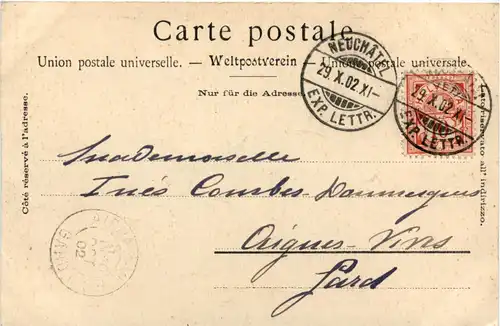 Carte postale.
Union postale universelle. — Weltpostverein — Unione postale universale.
Nur für die Adresse
Côté réservé à l'adresse.
Lato riservato all' indirizzo.
NEUCHÂTEL
29.X.02.XI–
EXP. LETTR.
29.X.02.XI–
EXP. LETTR.
Mademoiselle
Inés Combes-Daumergues
Aigues-Vives
Gard
AIGUES-
OCT
02
GARD